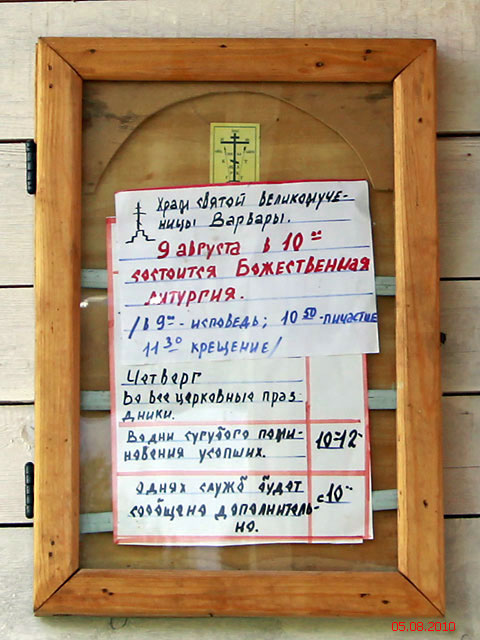 Храм святой великомуче-
ницы Варвары.
9 августа в 10 00
состоится Божественная
литургия.
/в 9 00 - исповедь; 10 50 - причастие
11 30 крещение/
Четверг
Во все церковные праз-
дники.
В одни сугубого поми-
новения усопших. 10-12
О днях служб будет с 10
сообщено дополнитель-
но.
05.08.2010